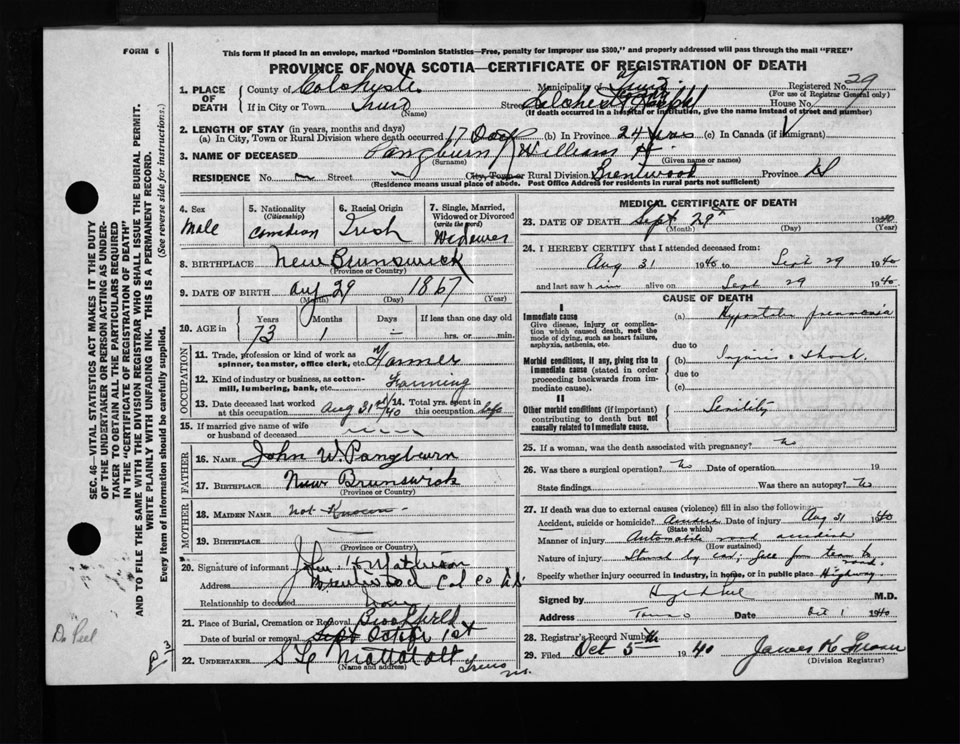 FORM 6
This form if placed in an envelope, marked "Dominion Statistics—Free, penalty for improper use $300," and properly addressed will pass through the mail "FREE"
PROVINCE OF NOVA SCOTIA—CERTIFICATE OF REGISTRATION OF DEATH
1. PLACE OF DEATH
County of Colchester
Municipality of Truro
Registered No. 29
(For use of Registrar General only)
If in City or Town Truro
(Name)
Street Colchester Hospital House No.
(If death occurred in a hospital or institution, give the name instead of street and number)
2. LENGTH OF STAY (in years, months and days)
(a) In City, Town or Rural Division where death occurred 17 Days (b) In Province 24 (c) In Canada (if immigrant)
3. NAME OF DECEASED Pangburn William H.
(Surname) (Given name or names)
RESIDENCE No. — Street — City, Town or Rural Division Brentwood Province NS
(Residence means usual place of abode. Post Office Address for residents in rural parts not sufficient)
4. Sex
Male
5. Nationality
(Citizenship)
Canadian
6. Racial Origin
Irish
7. Single, Married, Widowed or Divorced
(write the word)
Widower
8. BIRTHPLACE New Brunswick
(Province or Country)
9. DATE OF BIRTH Aug 29 1867
(Month) (Day) (Year)
10. AGE in Years Months Days If less than one day old
73 1 — hrs. or min.
OCCUPATION
11. Trade, profession or kind of work as spinner, teamster, office clerk, etc. Farmer
12. Kind of industry or business, as cotton-mill, lumbering, bank, etc. Farming
13. Date deceased last worked at this occupation Aug 31st 40
14. Total yrs. spent in this occupation life
15. If married give name of wife or husband of deceased
FATHER
16. NAME John W. Pangburn
17. BIRTHPLACE New Brunswick
(Province or Country)
MOTHER
18. MAIDEN NAME Not Known
19. BIRTHPLACE
(Province or Country)
20. Signature of informant John H Mathieson
Address Brentwood Col Co N.S.
Relationship to deceased
21. Place of Burial, Cremation or Removal Brookfield
Date of burial or removal Sept October 1st
22. UNDERTAKER
(Name and address)
Truro
MEDICAL CERTIFICATE OF DEATH
23. DATE OF DEATH Sept 29th 1940
(Month) (Day)
24. I HEREBY CERTIFY that I attended deceased from:
Aug 31 1940 to Sept 29 1940
and last saw him alive on Sept 29 1940
CAUSE OF DEATH
I
Immediate cause
Give disease, injury or complication which caused death, not the mode of dying, such as heart failure, asphyxia, asthenia, etc.
(a) Hypostatic pneumonia
due to
Morbid conditions, if any, giving rise to immediate cause (stated in order proceeding backwards from immediate cause).
(b) Injuries & Shock
due to
(c)
II
Other morbid conditions (if important) contributing to death but not causally related to immediate cause.
Senility
25. If a woman, was the death associated with pregnancy? No
26. Was there a surgical operation? No Date of operation 19
State findings Was there an autopsy? No
27. If death was due to external causes (violence) fill in also the following:
Accident, suicide or homicide? Accident Date of injury Aug 31 1940
(State which)
Manner of injury Automobile road accident
(How sustained)
Nature of injury Struck by car; fell from team to road.
Specify whether injury occurred in industry, in home, or in public place Highway
Signed by M.D.
Address Truro Date Oct 1 1940
28. Registrar's Record Number
29. Filed Oct 5th 1940
(Division Registrar)
SEC. 46—VITAL STATISTICS ACT MAKES IT THE DUTY
OF THE UNDERTAKER OR PERSON ACTING AS UNDER-
TAKER TO OBTAIN ALL THE PARTICULARS REQUIRED
IN THE "CERTIFICATE OF REGISTRATION OF DEATH"
AND TO FILE THE SAME WITH THE DIVISION REGISTRAR WHO SHALL ISSUE THE BURIAL PERMIT.
WRITE PLAINLY WITH UNFADING INK. THIS IS A PERMANENT RECORD.
Every item of information should be carefully supplied. (See reverse side for instructions.)
Dr Peel